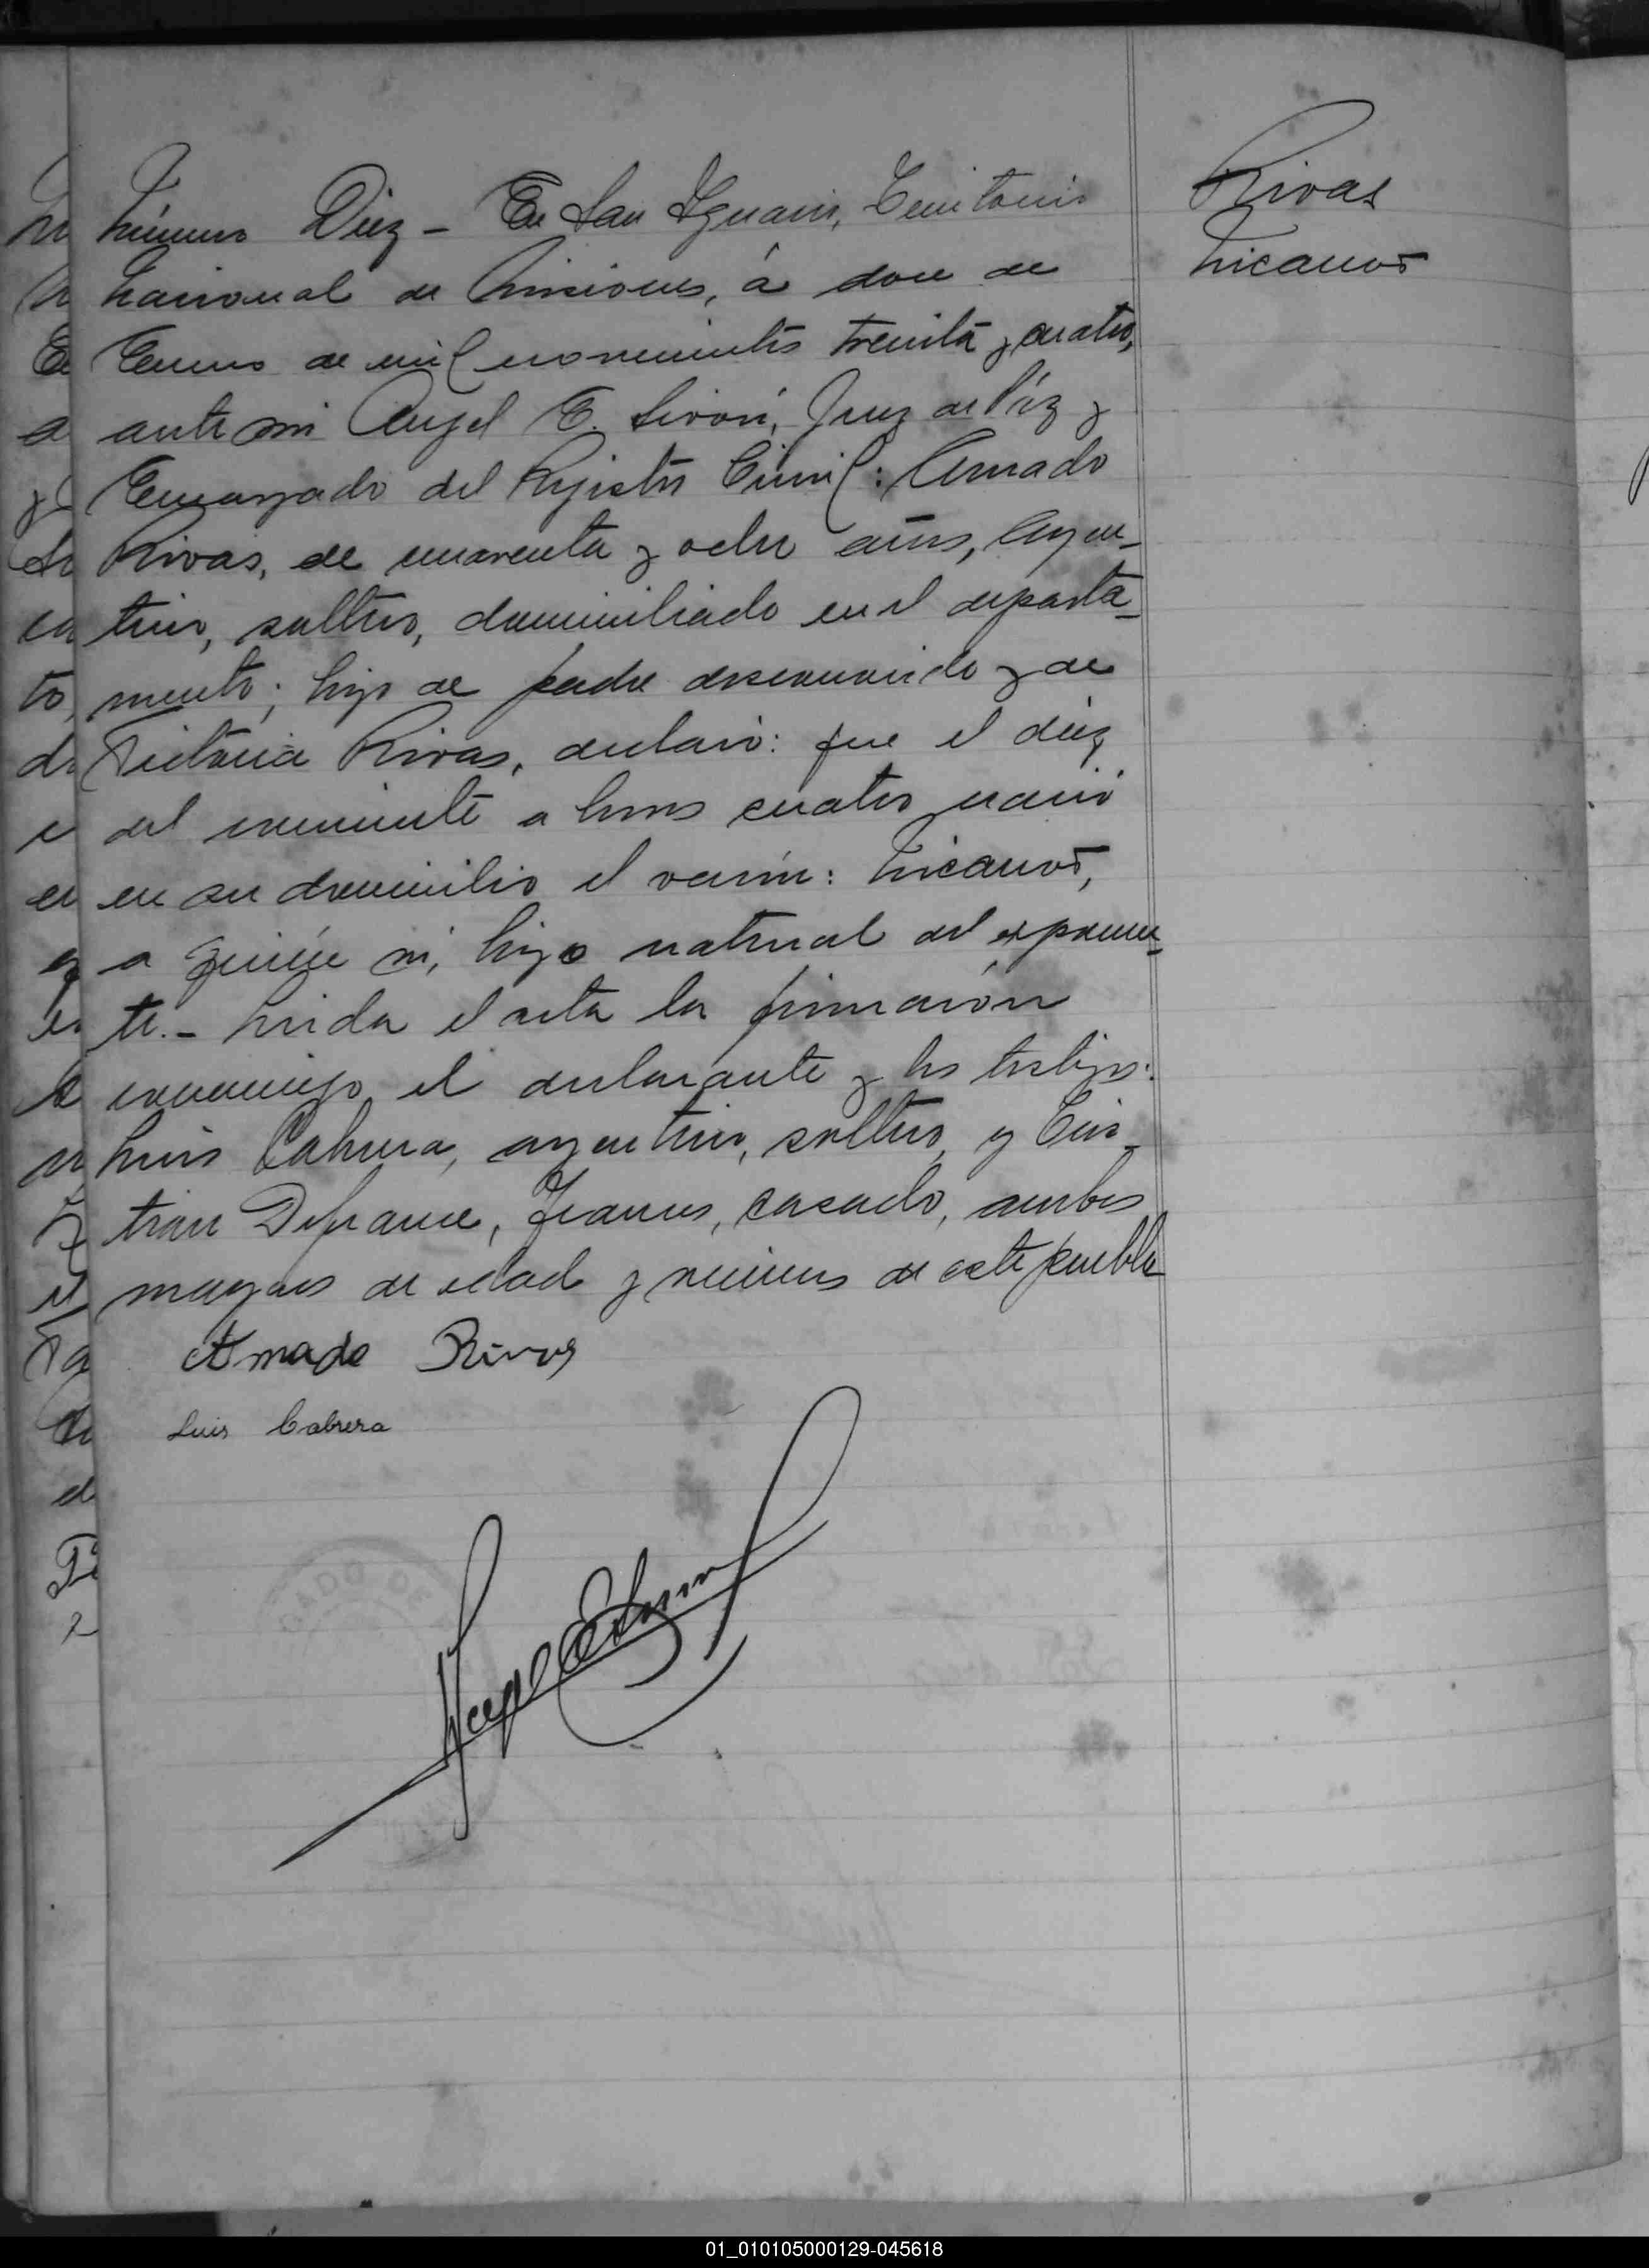 Número Diez - En San Ignacio, Territorio
Rivas
Nicanor
Nacional de Misiones, á doce de
Enero de mil novecientos treinta y cuatro,
ante mi Angel E. Juez de Páz y
Encargado del Rejistro Civil: Amado
Rivas, de cuarenta y ocho años, Argen-
tino, soltero, domiciliado en el departa-
mento; hijo de padre desconocido y de
Victoria Rivas, declaró: que el diez
del corriente a horas cuatro nació
en su domicilio el varón: Nicanor,
a quién vi, hijo natural del exponen-
te.- Leida el acta la firmarón
conmigo el declarante y los testigos:
Luis Cabrera, argentino, soltero, y
Defrance, frances, casado, ambos
mayores de edad y vecinos de este pueblo
Amado Rivas
Luis Cabrera
GADO DE
Angel E.
01_010105000129-045618